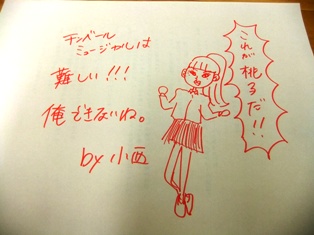 チンベール
ミュージカルは
難しい!!!
俺できないね。
by 小西
これが
桃子だ!!